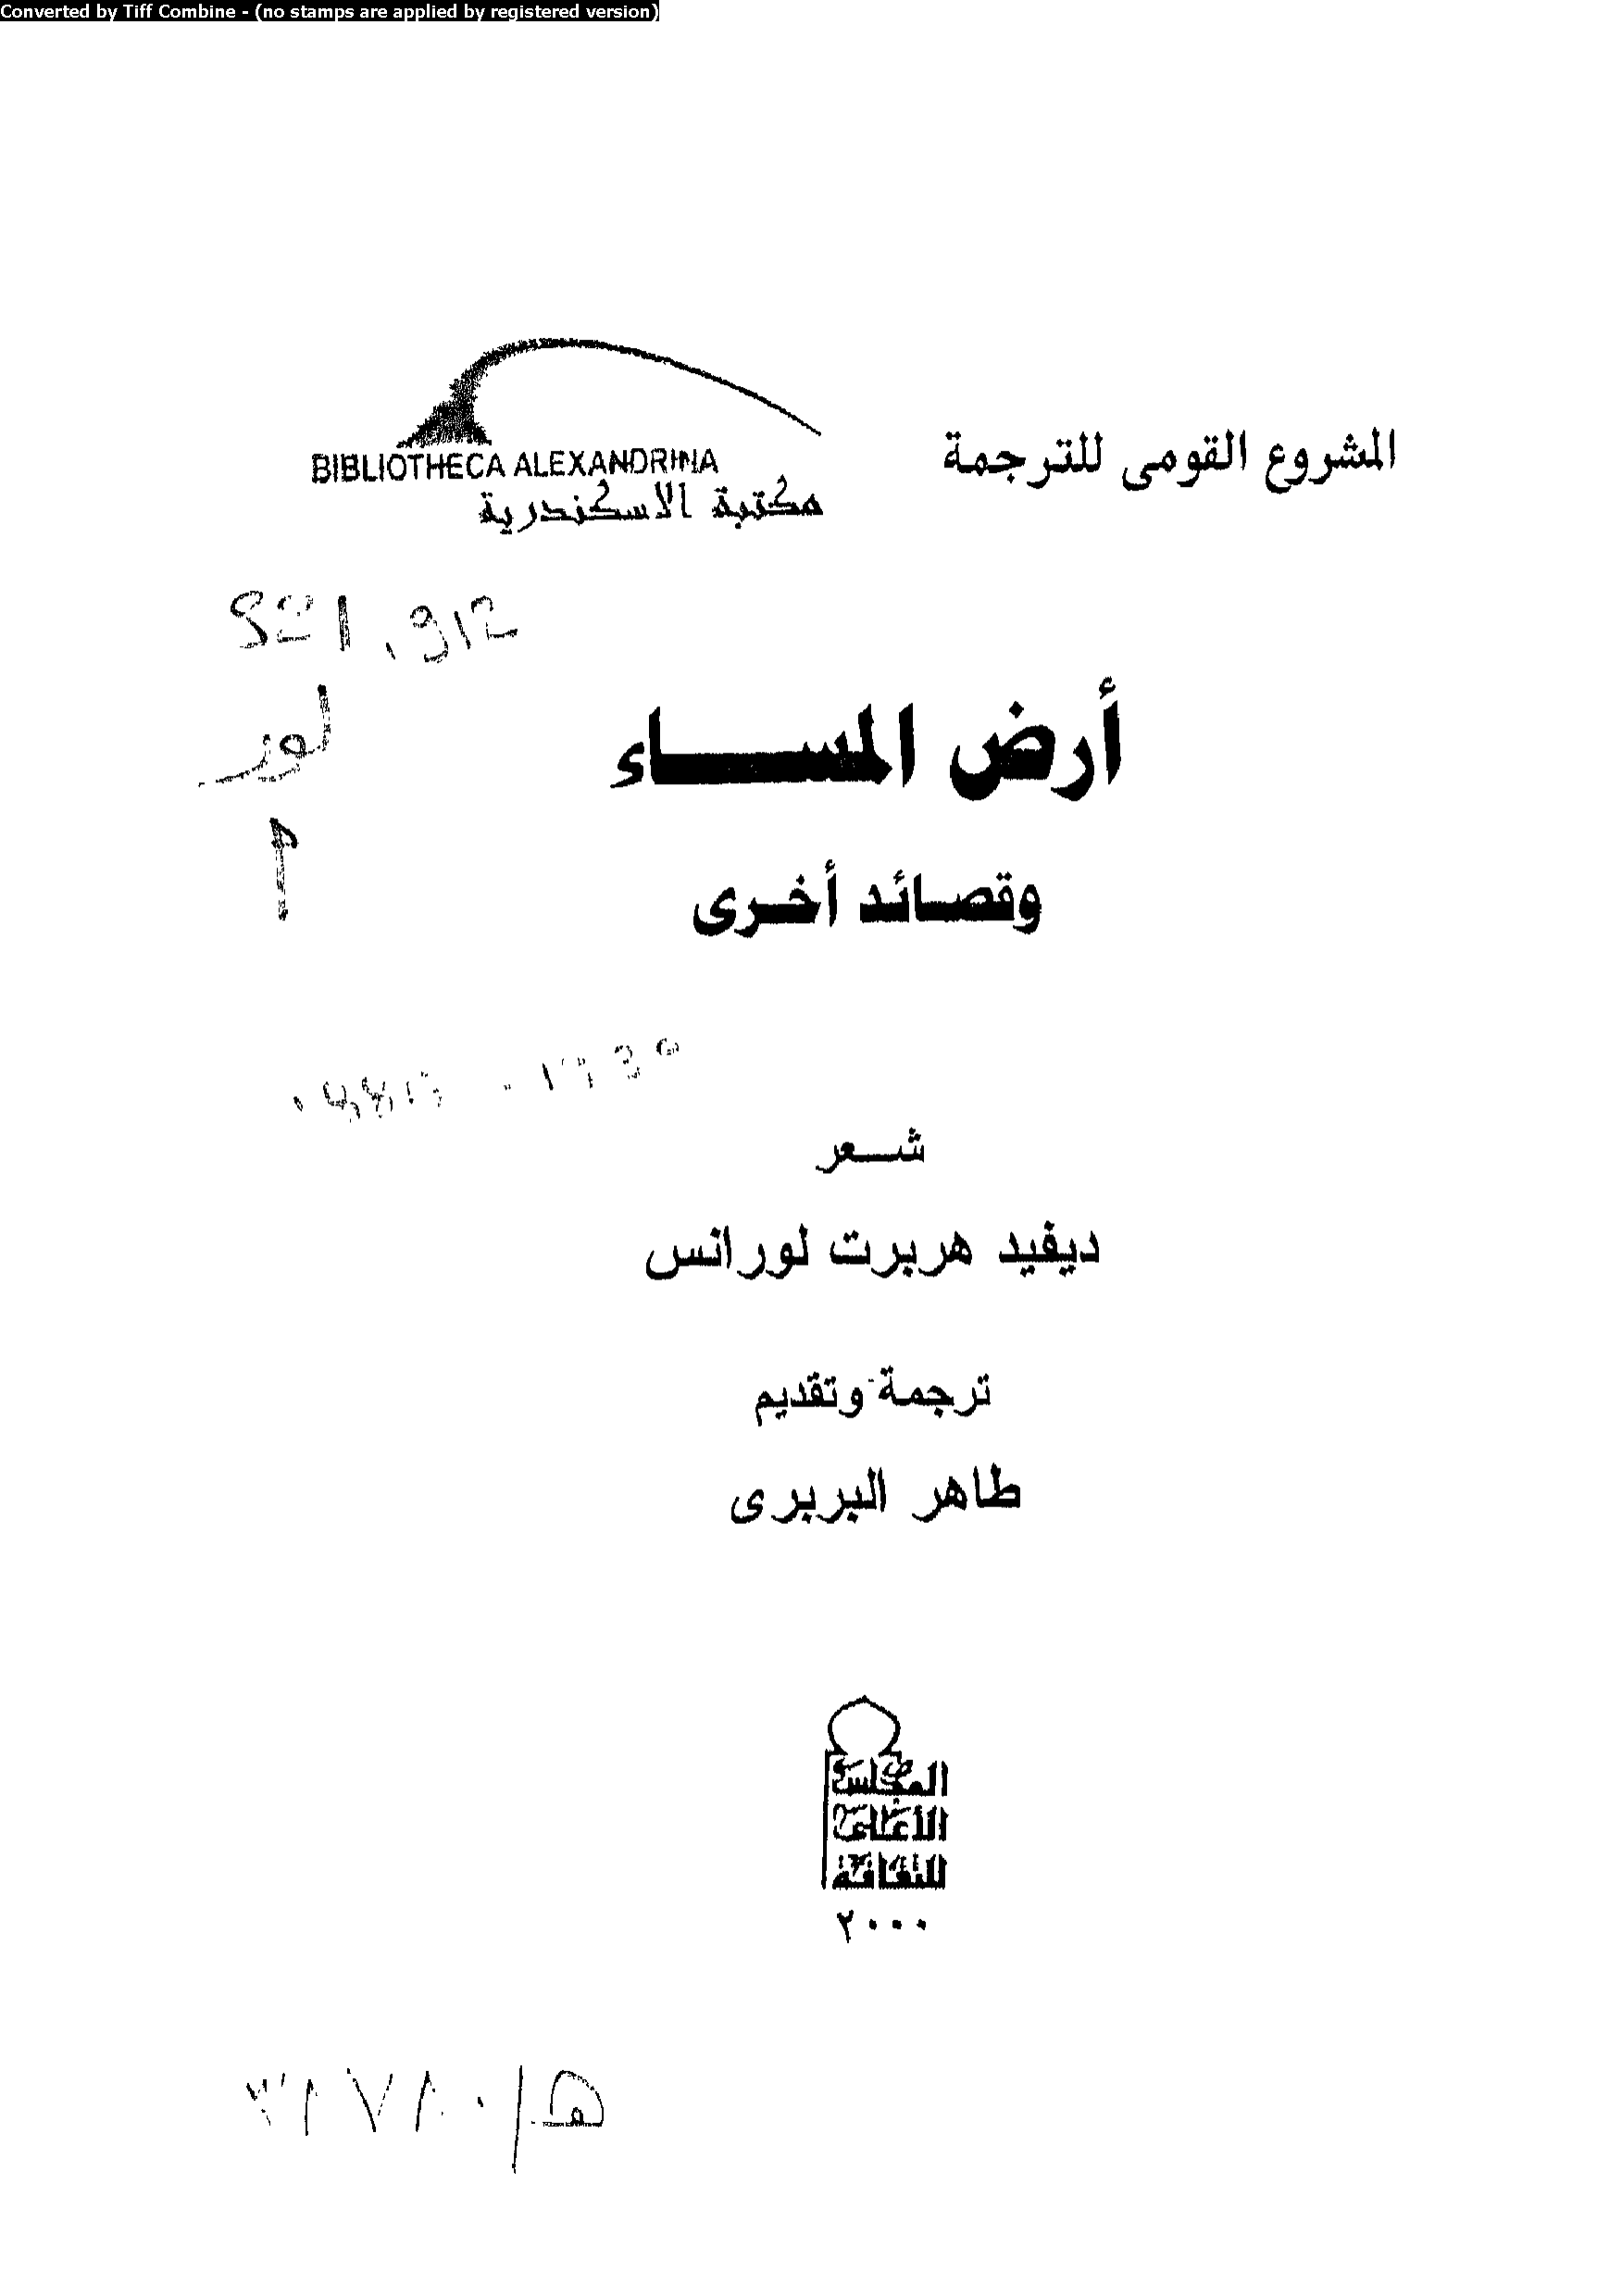 Converted by Tiff Combine - (no stamps are applied by registered version)
المشروع القومى للترجمة
BIBLIOTHECA ALEXANDRINA
مكتبة الاسكندرية
821.912
لور
أ
أرض المساء
وقصائد أخرى
شعر
ديفيد هربرت لورانس
ترجمة وتقديم
طاهر البربرى
المجلس
الأعلى
للثقافة
٢٠٠٠